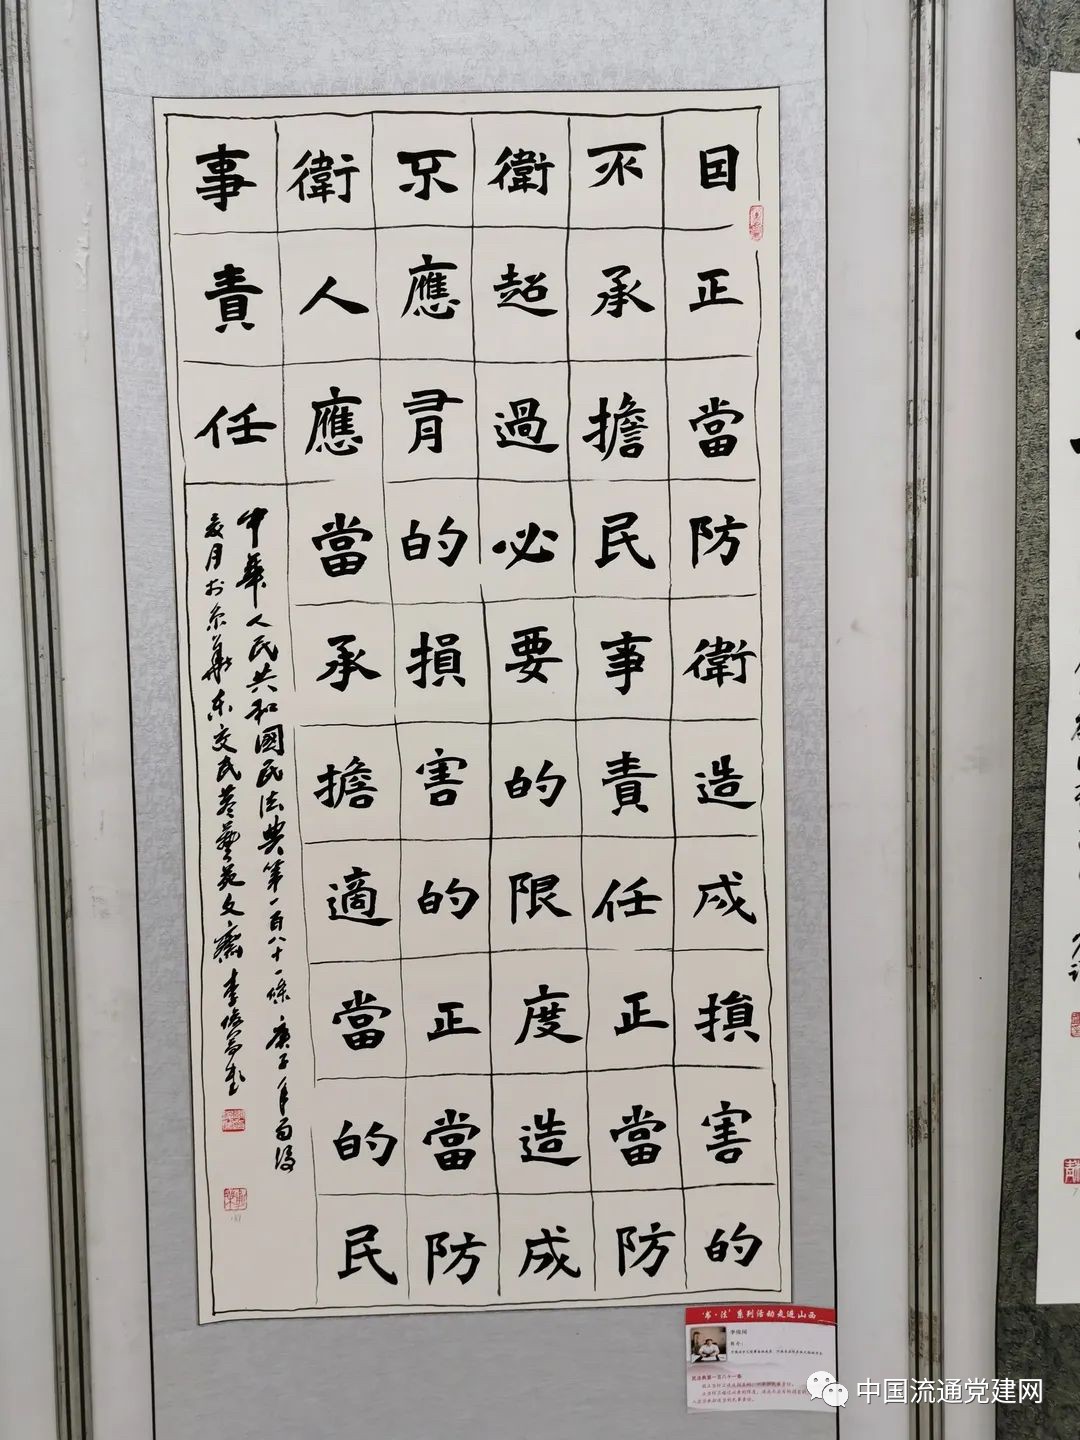 因正當防衛造成損害的
不承擔民事責任正當防
衛超過必要的限度造成
不應有的損害的正當防
衛人應當承擔適當的民
事責任
中華人民共和國民法典第一百八十一條 庚子年
月於京華東交民巷藝苑文齋 李
'书·法'系列活动走进山西
民法典第一百八十一条
中国流通党建网